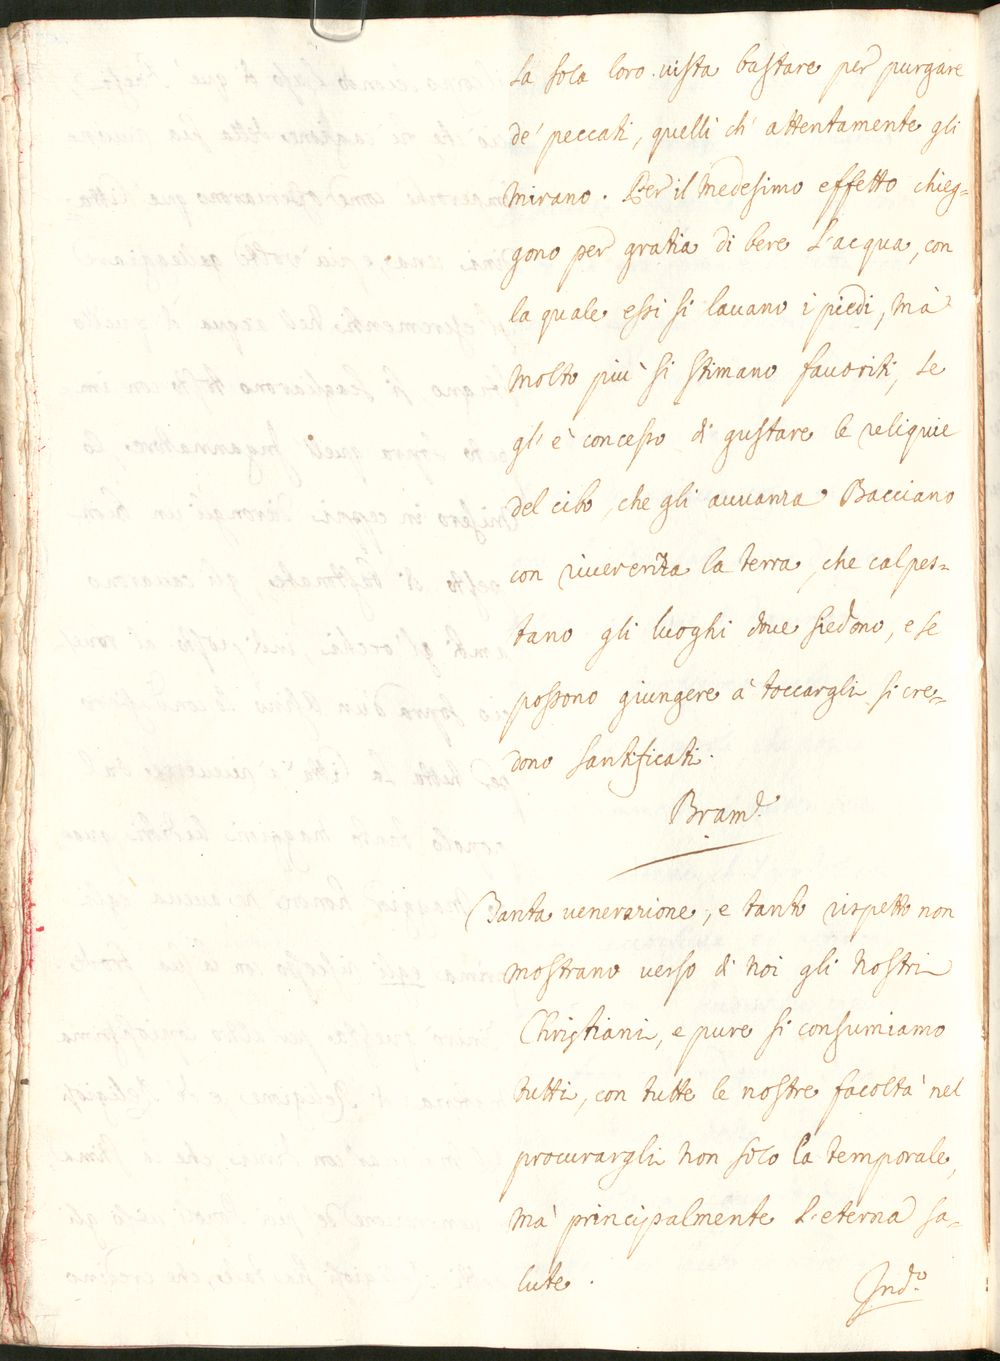 la sola loro vista bastare per purgare
de' peccati, quelli ch' attentamente gli
mirano. Per il medesimo effetto chieg-
gono per gratia di bere l'acqua, con
la quale essi si lauano i piedi, mà
molto più si stimano fauoriti, se
gl' è concesso di gustare le reliquie
del cibo, che gli auuanza Bacciano
con riuerenza la terra, che calpes-
tano gli luoghi doue siedono, e se
possono giungere à toccargli si cre-
dono santificati.
Bram.
Tanta venerazione, e tanto rispetto non
mostrano verso di noi gli nostri
Christiani, e pure si consumiamo
tutti, con tutte le nostre facoltà nel
procurargli non solo la temporale,
mà principalmente l'eterna sa-
lute.
Ind.º